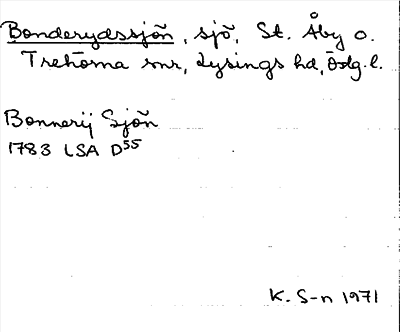 Bonderydssjön, sjö, St. Åby o.
Trehörna snr, Lysings hd, Ög. l.
Bonnerij Sjön
1783 LSA D55
K. S-n 1971